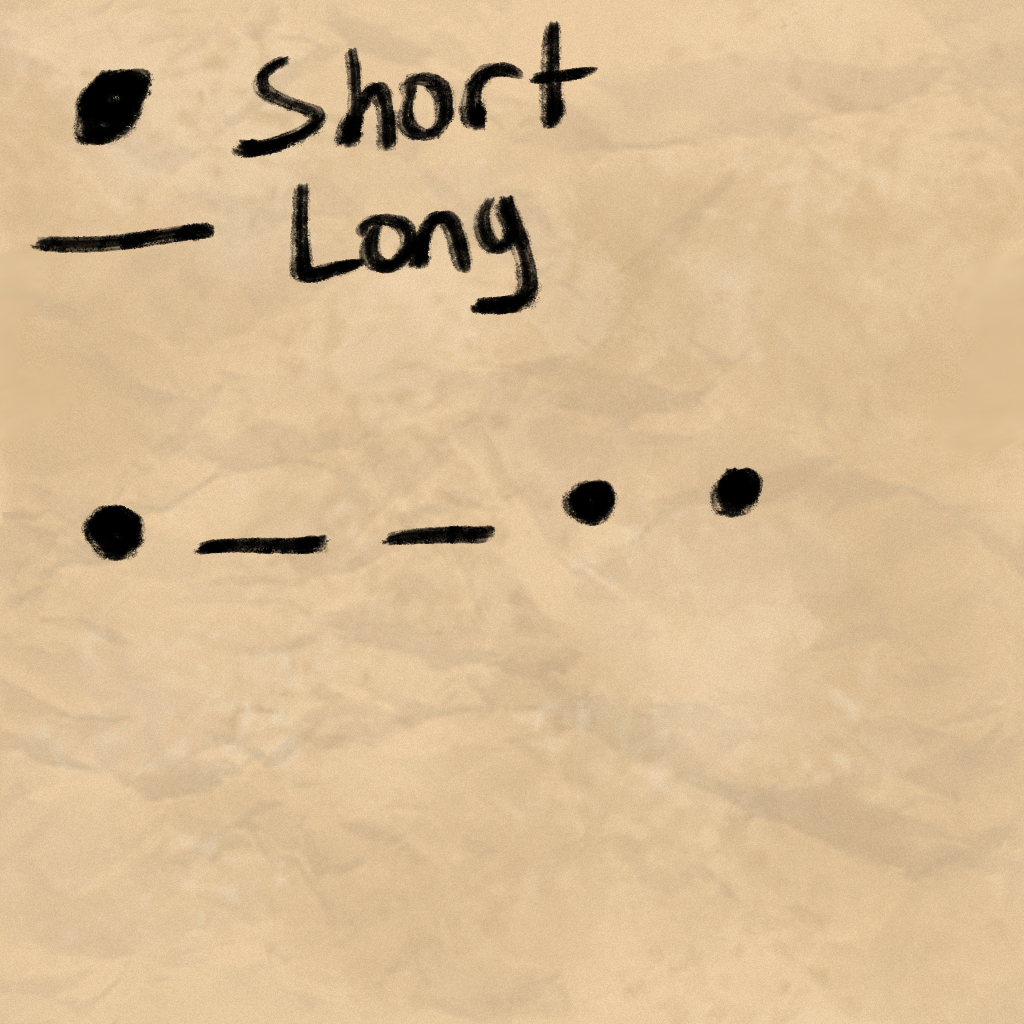 ● Short
— Long
● — — ● ●